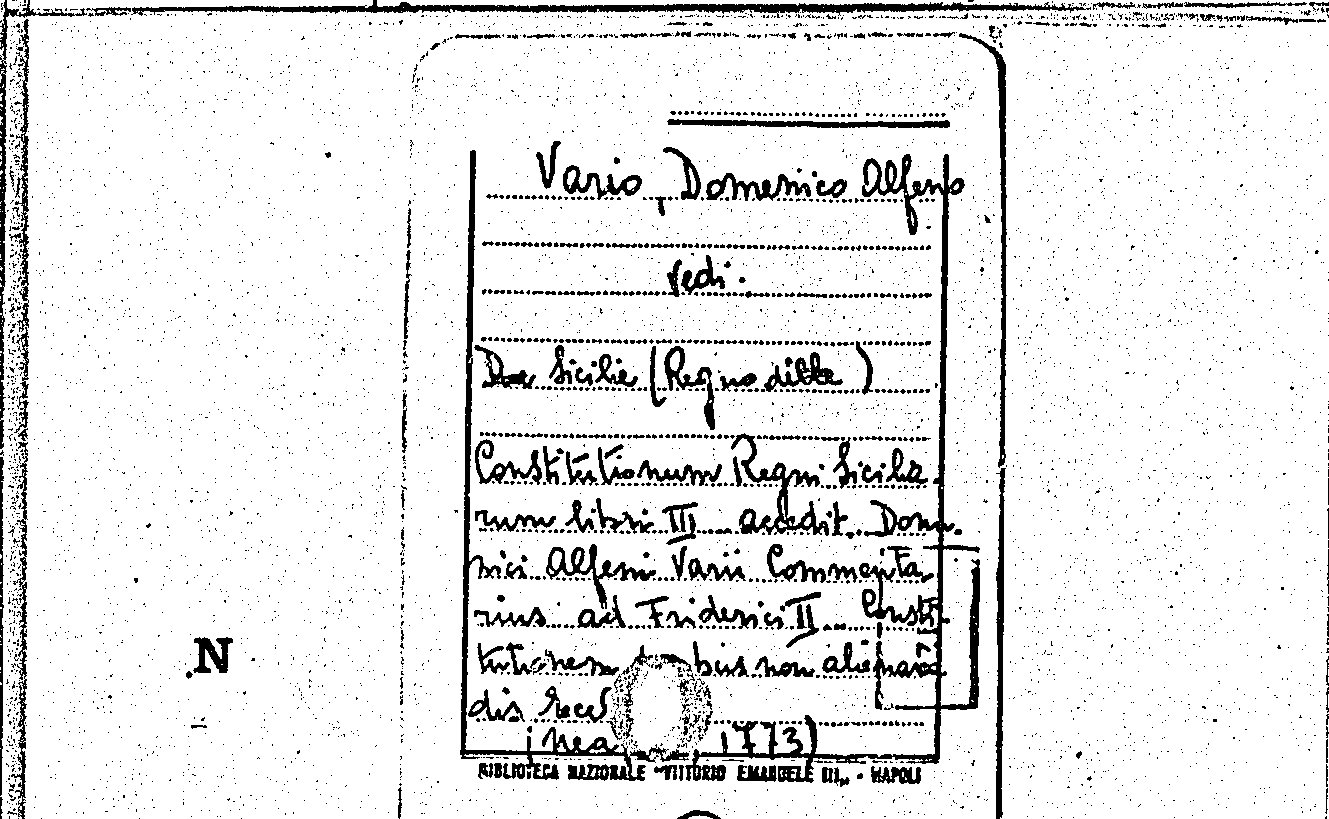 Vario, Domenico Alfeno
vedi.
Due Sicilie (Regno delle)
Constitutionum Regni Sicilia-
rum libri III... accedit... Domi-
nici Alfeni Varii Commenta-
rius ad Friderici II... Consti-
tutionem de rebus non alienan
dis
(Nea 1773)
BIBLIOTECA NAZIONALE "VITTORIO EMANUELE III„ - NAPOLI
N